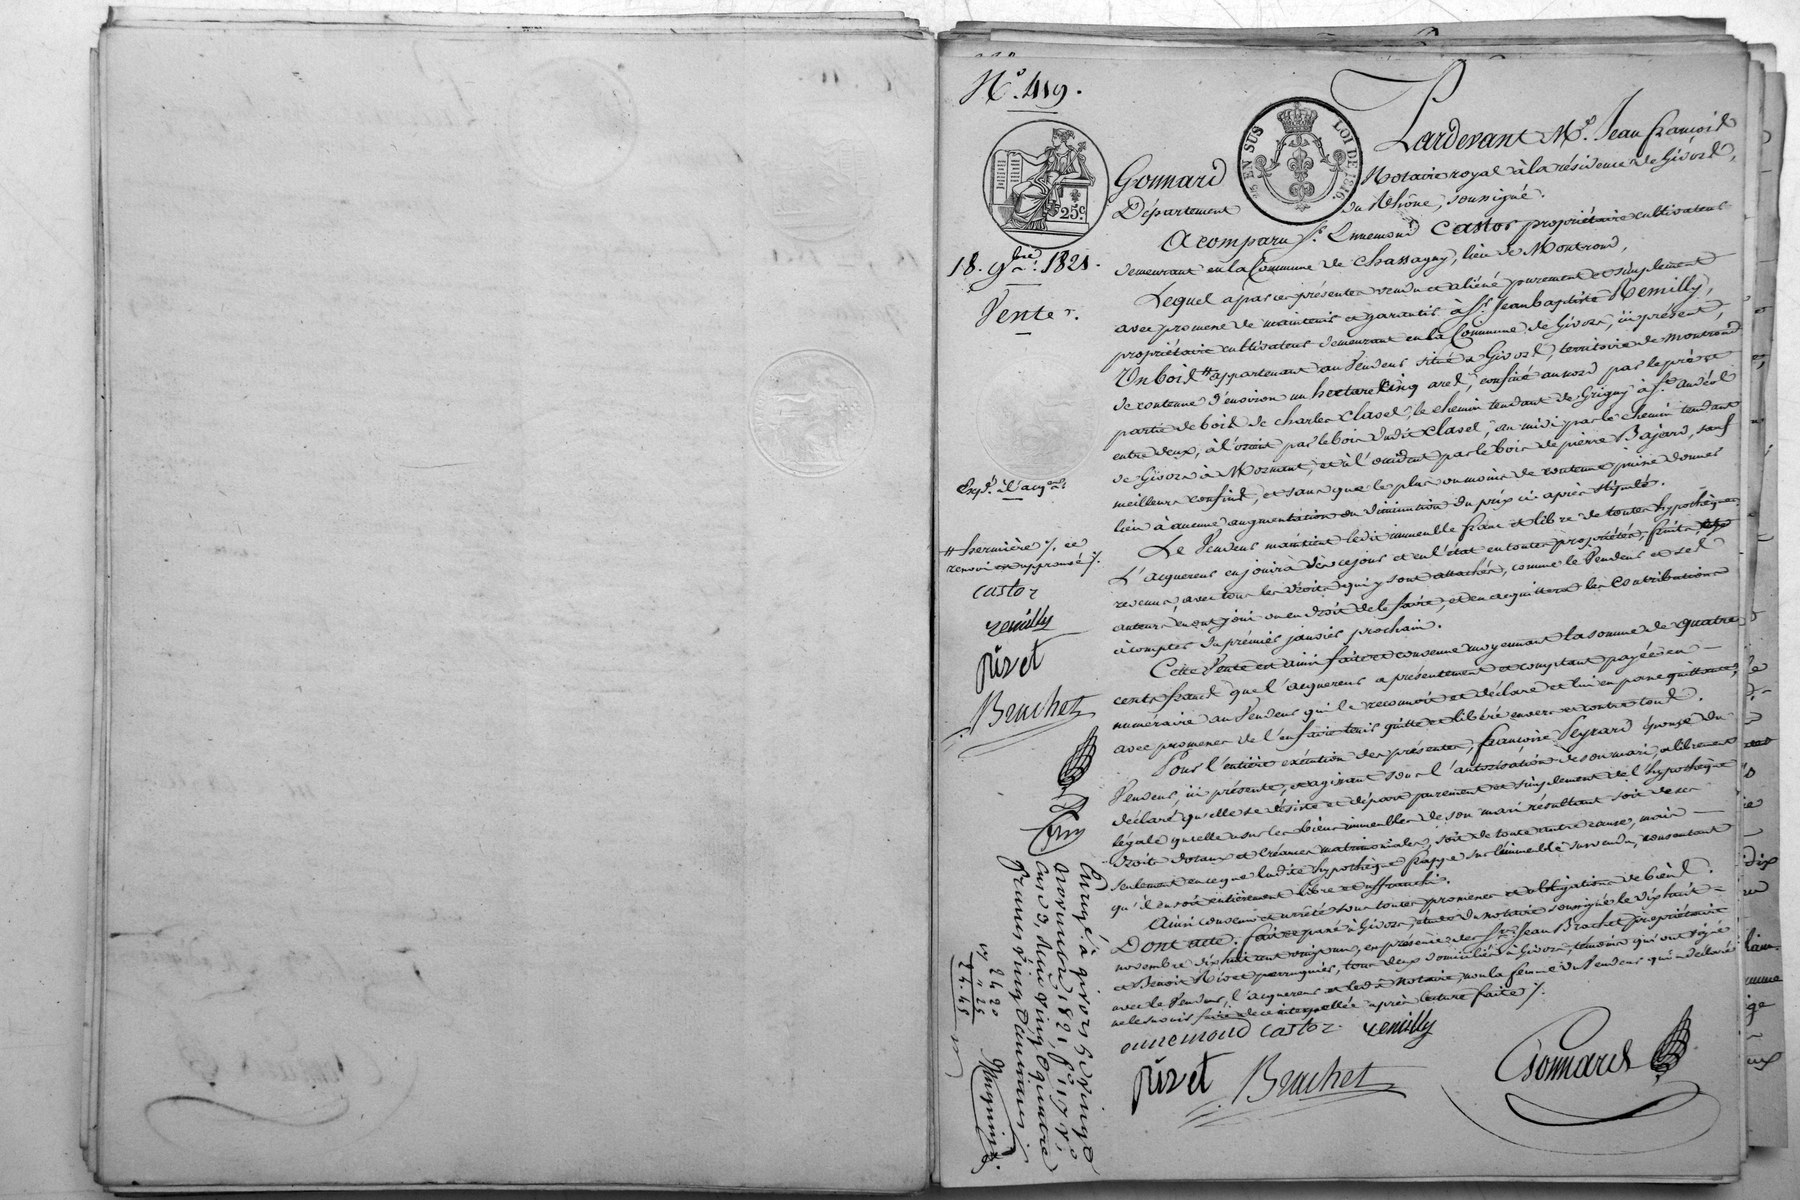 N.º 419.
Pardevant Mᵉ. Jean françois
Gonnard
EN SUS
LOI DE 1816.
25 c.
Notaire royal à la résidence de Givors,
Département
du Rhône, soussigné.
18. 9bre. 1821.
Vente.
A comparu Sr. Ennemond Castor propriétaire cultivateur
demeurant en la Commune de Chassagny, lieu de Montrond,
Lequel a par ces présentes vendu et aliéné purement et simplement
avec promesse de maintenir et garantir à Sr. Jean baptiste Remilly,
propriétaire cultivateur demeurant en la Commune de Givors, ici présent,
Un bois # appartenant au Vendeur situé à Givors, territoire de montrond
de contenue d'environ un hectare cinq ares, confiné au nord par le
partie de bois de charles Clavel, le chemin tendant de Grigny à St. Andéol
entre deux, à l'orient par le bois dudit Clavel, au midi par le chemin tendant
de Givors à Mornant, et à l'occident par le bois de pierre Bajard, sauf
meilleurs confins, et sans que le plus ou moins de contenue puisse donner
lieu à aucune augmentation ou diminution du prix ci-après stipulé.
Le Vendeur maintient ledit immeuble franc et libre de toutes hypothèques.
L'acquereur en jouira dès ce jour et en l'état en toute propriété, fruits
revenus, avec tous les droits qui y sont attachés, comme le Vendeur et ses
auteurs en ont joui ou eu droit de le faire, et en acquittera les Contributions
à compter du premier janvier prochain.
Cette Vente est ainsi faite et convenue moyennant la somme de quatre
cents francs que l'acquereur a présentement et comptant payée en
numéraire au Vendeur qui le reconnoit et déclare et lui en passe quittance,
avec promesse de l'en faire tenir quitte et libéré envers et contre tous.
Pour l'entière exécution des présentes, françoise Peyrard épouse du
Vendeur, ici présente, et agissant sous l'autorisation de son mari, a librement
déclaré qu'elle se désiste et départ purement et simplement de l'hypothèque
légale qu'elle a sur les biens immeubles de son mari résultant soit de ses
droits dotaux et Créances matrimoniales, soit de toute autre cause, mais
seulement en ce que ladite hypothèque frappe sur l'immeuble sus vendu, consentant
qu'il en soit entièrement libre et affranchi.
Ainsi convenu et arrêté sous toutes promesses et obligations de biens.
Dont acte. fait et passé à Givors, étude du notaire soussigné le dix huit
novembre dix huit cent vingt un, en présence des Srs. Jean Brachet propriétaire
et Benoit Rivet perruquier, tous deux domiciliés à Givors, témoins qui ont signé
avec le Vendeur, l'acquereur et led. Notaire, non la femme du Vendeur qui a déclaré
ne le savoir faire de ce interpellée après lecture faite ./.
ennemond castor remilly
rivet Brachet Gonnard
Expé. à l'acqr.
# ce
renvoi est approuvé ./.
castor
remilly
rivet
Brachet
Enreg.é à givors le vingt
novembre 1821, fº 117 v,
Case 3, Reçu vingt quatre
francs vingt
24 20
" 25
24.45